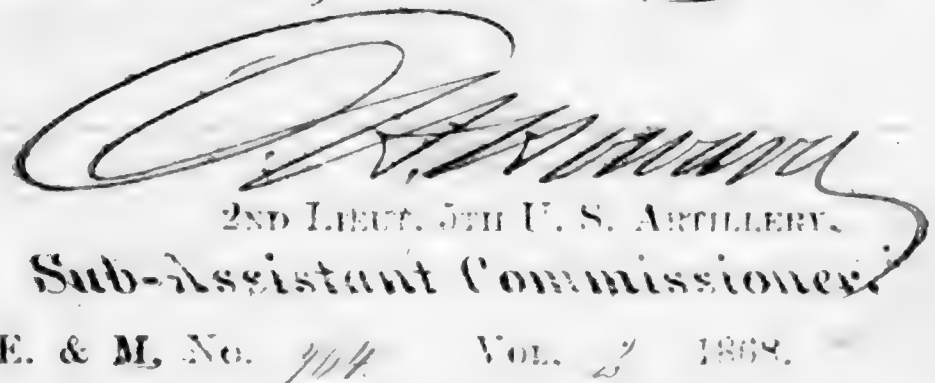 2ND LIEUT. 5TH U. S. ARTILLERY.
Sub-Assistant Commissioner.
E. & M, No. 704 VOL. 2 1868.